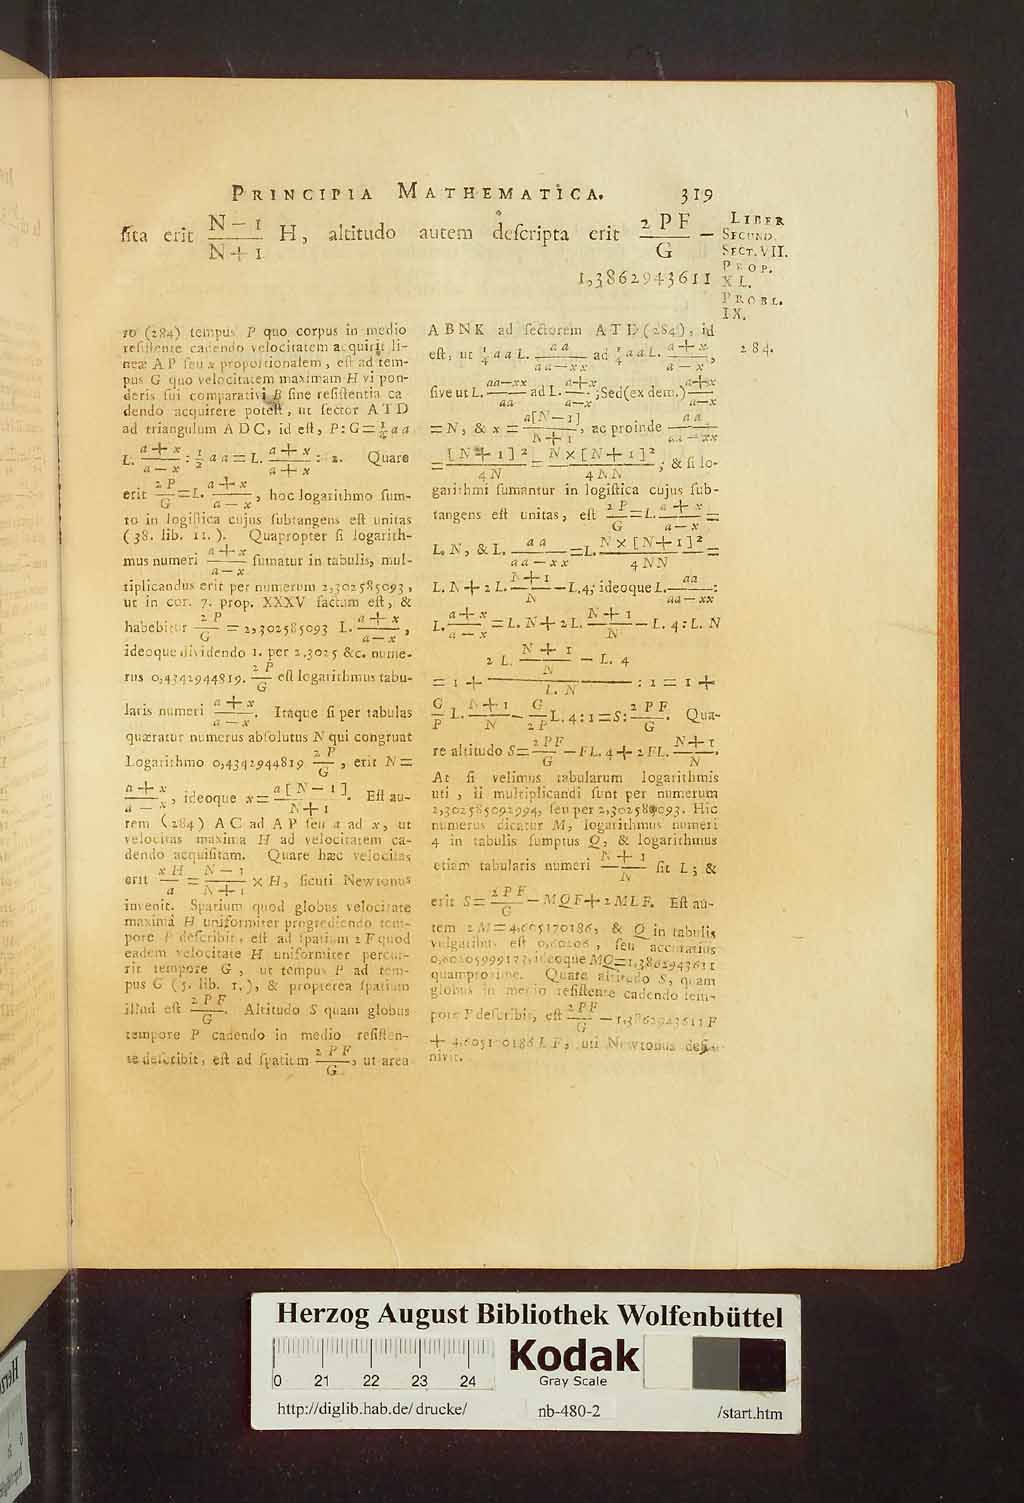 PRINCIPIA MATHEMATICA. 319
ſita erit \frac{N-1}{N+1} H, altitudo autem deſcripta erit \frac{2PF}{G} —
1,3862943611
LIBER
SECUND.
SECT. VII.
PROP.
XL.
PROBL.
IX.
to (284) tempus P quo corpus in medio
reſiſtente cadendo velocitatem acquirit li-
neæ AP ſeu x proportionalem, eſt ad tem-
pus G quo velocitatem maximam H vi pon-
deris ſui comparativi B ſine reſiſtentia ca
dendo acquirere poteſt, ut ſector ATD
ad triangulum ADC, id eſt, P:G=\frac{1}{4}aa
L. \frac{a+x}{a-x} : \frac{1}{2}aa=L. \frac{a+x}{a+x} : 2. Quare
erit \frac{2P}{G}=L. \frac{a+x}{a-x}, hoc logarithmo ſum-
to in logiſtica cujus ſubtangens eſt unitas
(38. lib. 11.). Quapropter ſi logarith-
mus numeri \frac{a+x}{a-x} ſumatur in tabulis, mul-
tiplicandus erit per numerum 2,302585093,
ut in cor. 7. prop. XXXV factum eſt, &
habebitur \frac{2P}{G} = 2,302585093 L. \frac{a+x}{a-x},
ideoque dividendo 1. per 2,3025 &c. nume-
rus 0,4342944819. \frac{2P}{G} eſt logarithmus tabu-
laris numeri \frac{a+x}{a-x}. Itaque ſi per tabulas
quæratur numerus abſolutus N qui congruat
Logarithmo 0,4342944819 \frac{2P}{G}, erit N=
\frac{a+x}{a-x}, ideoque x=\frac{a[N-1]}{N+1}. Eſt au-
rem (284) AC ad AP ſeu a ad x, ut
velocitas maxima H ad velocitatem ca-
dendo acquiſitam. Quare hæc velocitas
erit \frac{xH}{a}=\frac{N-1}{N+1}×H, ſicuti Newtonus
invenit. Spatium quod globus velocitate
maximâ H uniformiter progrediendo tem-
pore P deſcribit, eſt ad ſpatium 2F quod
eadem velocitate H uniformiter percur-
rit tempore G, ut tempus P ad tem-
pus G (5. lib. 1.), & propterea ſpatium
illud eſt \frac{2PF}{G}. Altitudo S quam globus
tempore P cadendo in medio reſiſten-
te deſcribit, eſt ad ſpatium \frac{2PF}{G}, ut area
ABNK ad ſectorem ATD (284), id
eſt, ut \frac{1}{4}aaL. \frac{aa}{aa-xx} ad \frac{1}{4}aaL. \frac{a+x}{a-x},
284.
ſive ut L. \frac{aa-xx}{aa} ad L. \frac{a+x}{a-x}; Sed (ex dem.) \frac{a+x}{a-x}
=N, & x=\frac{a[N-1]}{N+1}, ac proinde \frac{aa}{aa-xx}
=\frac{[N+1]²}{4N}=\frac{N×[N+1]²}{4NN}; & ſi lo-
garithmi ſumantur in logiſtica cujus ſub-
tangens eſt unitas, eſt \frac{2P}{G}=L.\frac{a+x}{a-x}=
L.N, & L. \frac{aa}{aa-xx}=L.\frac{N×[N+1]²}{4NN}=
L.N+2L.\frac{N+1}{N}-L.4; ideoque L.\frac{aa}{aa-xx}:
L.\frac{a+x}{a-x}=L.N+2L.\frac{N+1}{N}-L.4:L.N
=1+\frac{2L.\frac{N+1}{N}-L.4}{L.N}:1=1+
\frac{G}{P}L.\frac{N+1}{N}-\frac{G}{2P}L.4:1=S:\frac{2PF}{G}. Qua-
re altitudo S=\frac{2PF}{G}-FL.4+2FL.\frac{N+1}{N}.
At ſi velimus tabularum logarithmis
uti, ii multiplicandi ſunt per numerum
2,302585092994, ſeu per 2,302585093. Hic
numerus dicatur M, logarithmus numeri
4 in tabulis ſumptus Q, & logarithmus
etiam tabularis numeri \frac{N+1}{N} ſit L; &
erit S=\frac{2PF}{G}-MQF+2MLF. Eſt au-
tem 2M=4,605170186, & Q in tabulis
vulgatibus eſt 0,60206, ſeu accuratius
0,6020599913, ideoque MQ=1,3862943611
quamproxime. Quare altitudo S, quam
globus in medio reſiſtente cadendo tem-
pore P deſcribit, eſt \frac{2PF}{G}-1,3862943611F
+4,605170186LF, uti Newtonus defi-
nivit.
Herzog August Bibliothek Wolfenbüttel
0 21 22 23 24
Kodak
Gray Scale
http://diglib.hab.de/drucke/ nb-480-2 /start.htm